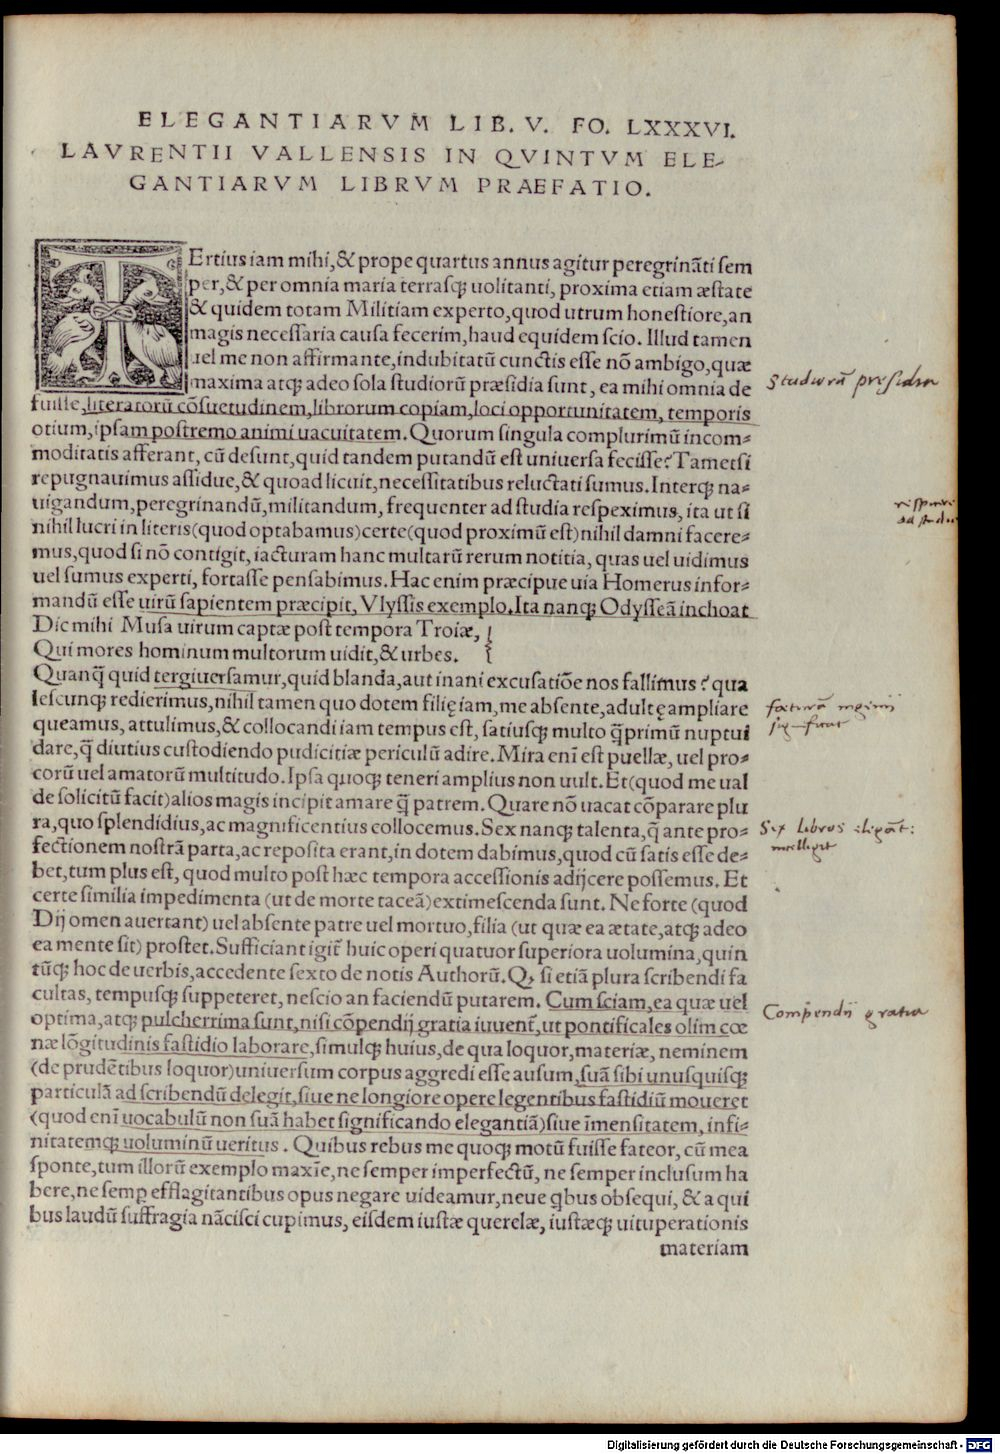 ELEGANTIARVM LIB. V. FO. LXXXVI.
LAVRENTII VALLENSIS IN QVINTVM ELE-
GANTIARVM LIBRVM PRAEFATIO.
TErtius iam mihi,& prope quartus annus agitur peregrinãti sem
per,& per omnia maria terrasq; uolitanti, proxima etiam æstate
& quidem totam Militiam experto,quod utrum honestiore,an
magis necessaria causa fecerim,haud equidem scio. Illud tamen
uel me non affirmante,indubitatũ cunctis esse nõ ambigo,quæ
maxima atq; adeo sola studiorũ præsidia sunt, ea mihi omnia de
Studiorũ presidia
fuisse,literatorũ cõsuetudinem,librorum copiam,loci opportunitatem, temporis
otium,ipsam postremo animi uacuitatem. Quorum singula complurimũ incom-
moditatis afferant, cũ desunt,quid tandem putandũ est uniuersa fecisse? Tametsi
repugnauimus assidue,& quoad licuit,necessitatibus reluctati sumus. Interq; na-
uigandum,peregrinandũ,militandum, frequenter ad studia respeximus, ita ut si
nihil lucri in literis(quod optabamus)certe(quod proximũ est)nihil damni facere-
mus,quod si nõ contigit, iacturam hanc multarũ rerum notitia, quas uel uidimus
uel sumus experti, fortasse pensabimus. Hac enim præcipue uia Homerus infor-
mandũ esse uirũ sapientem præcipit, Vlyssis exemplo. Ita nanq; Odysseã inchoat
Dic mihi Musa uirum captæ post tempora Troiæ,
Qui mores hominum multorum uidit,& urbes.
Quanq̃ quid tergiuersamur,quid blanda,aut inani excusatiõe nos fallimus? qua
lescunq; redierimus,nihil tamen quo dotem filię iam,me absente,adultę ampliare
queamus, attulimus,& collocandi iam tempus est, satiusq; multo q̃primũ nuptui
dare,q̃ diutius custodiendo pudicitiæ periculũ adire. Mira enĩ est puellæ, uel pro-
corũ uel amatorũ multitudo. Ipsa quoq; teneri amplius non uult. Et(quod me ual
de solicitũ facit)alios magis incipit amare q̃ patrem. Quare nõ uacat cõparare plu
ra,quo splendidius, ac magnificentius collocemus. Sex nanq; talenta,q̃ ante pro-
Sex libros
fectionem nostrã parta,ac reposita erant,in dotem dabimus,quod cũ satis esse de-
bet,tum plus est, quod multo post hæc tempora accessionis adijcere possemus. Et
certe similia impedimenta (ut de morte taceã)extimescenda sunt. Ne forte (quod
Dij omen auertant) uel absente patre uel mortuo, filia (ut quæ ea ætate, atq; adeo
ea mente sit) prostet. Sufficiant igit̃ huic operi quatuor superiora uolumina,quin
tũq; hoc de uerbis,accedente sexto de notis Authorũ. Q, si etiã plura scribendi fa
cultas, tempusq; suppeteret, nescio an faciendũ putarem. Cum sciam,ea quæ uel
optima,atq; pulcherrima sunt,nisi cõpendij gratia iuuent̃,ut pontificales olim cœ
Compendij gratia
næ lõgitudinis fastidio laborare,simulq; huius,de qua loquor,materiæ, neminem
(de prudẽtibus loquor)uniuersum corpus aggredi esse ausum,suã sibi unusquisq;
particulã ad scribendũ delegit,siue ne longiore opere legentibus fastidiũ moueret
(quod enĩ uocabulũ non suã habet significando elegantiã)siue ĩmensitatem, infi-
nitatemq; uoluminũ ueritus. Quibus rebus me quoq; motũ fuisse fateor, cũ mea
sponte,tum illorũ exemplo maxĩe, ne semper imperfectũ, ne semper inclusum ha
bere,ne semp̱ efflagitantibus opus negare uideamur,neue q̃bus obsequi, & a qui
bus laudũ suffragia nãcisci cupimus, eisdem iustæ querelæ, iustæq; uituperationis
materiam
Digitalisierung gefördert durch die Deutsche Forschungsgemeinschaft - DFG